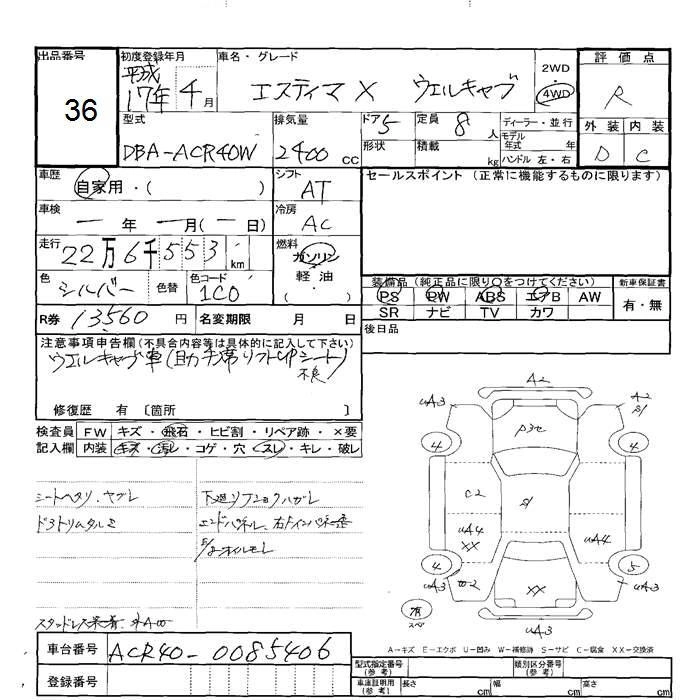 出品番号
36
初度登録年月
平成
17年 4月
車名・グレード
エスティマ X ウェルキャブ
2WD
4WD
評価点
R
外装 内装
D C
型式
DBA-ACR40W
排気量
2400 cc
ドア 5
形状
定員 8 人
積載 kg
ディーラー・並行
モデル
年式 年
ハンドル 左・右
車歴
自家用・( )
シフト
AT
車検
一 年 一 月(一 日)
冷房
AC
走行
22万6千553 km
燃料
ガソリン
軽油
( ・ )
色
シルバー
色替
色コード
1C0
R券 13560 円
名変期限 月 日
セールスポイント (正常に機能するものに限ります)
装備品 (純正品に限り○をつけてください)
PS PW ABS エアB AW
SR ナビ TV カワ
新車保証書
有・無
後日品
注意事項申告欄 (不具合内容等は具体的に記入して下さい)
ウェルキャブ車(助手席リフトUPシート)
不良
修復歴 有 〔箇所 〕
検査員
記入欄
FW キズ・飛石・ヒビ割・リペア跡・×要
内装 キズ・汚レ・コゲ・穴・スレ・キレ・破レ
シートヘタリ、ヤブレ
ドアトリムタルミ
エンドパネル、
オイルモレ
スタッドレス
車台番号 ACR40-0085406
登録番号
A2
uA3
A2
S1
P3セ
4
4
C2
S1
uA4
XX
uA4
4
5
uA3
W2
XX
uA3
uA3
有
スペア
A-キズ E-エクボ U-凹み W-補修跡 S-サビ C-腐食 XX-交換済
型式指定番号
(参考)
類別区分番号
(参考)
車庫証明用
(参考)
長さ cm 幅 cm 高さ cm